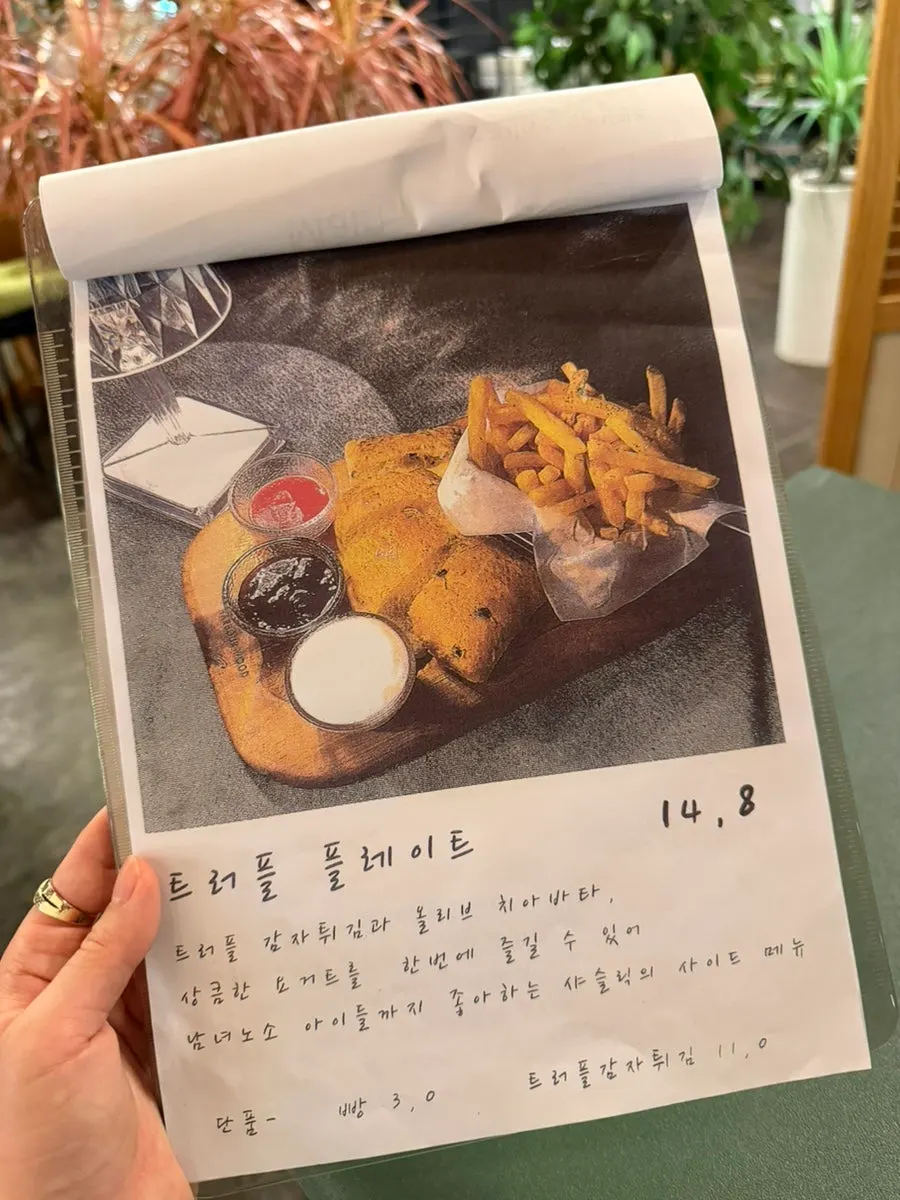 14,8
트러플 플레이트
트러플 감자튀김과 올리브 치아바타,
상큼한 요거트를 한번에 즐길 수 있어
남녀노소 아이들까지 좋아하는 샤슬릭의 사이드 메뉴
단품- 빵 3,0 트러플감자튀김 11,0